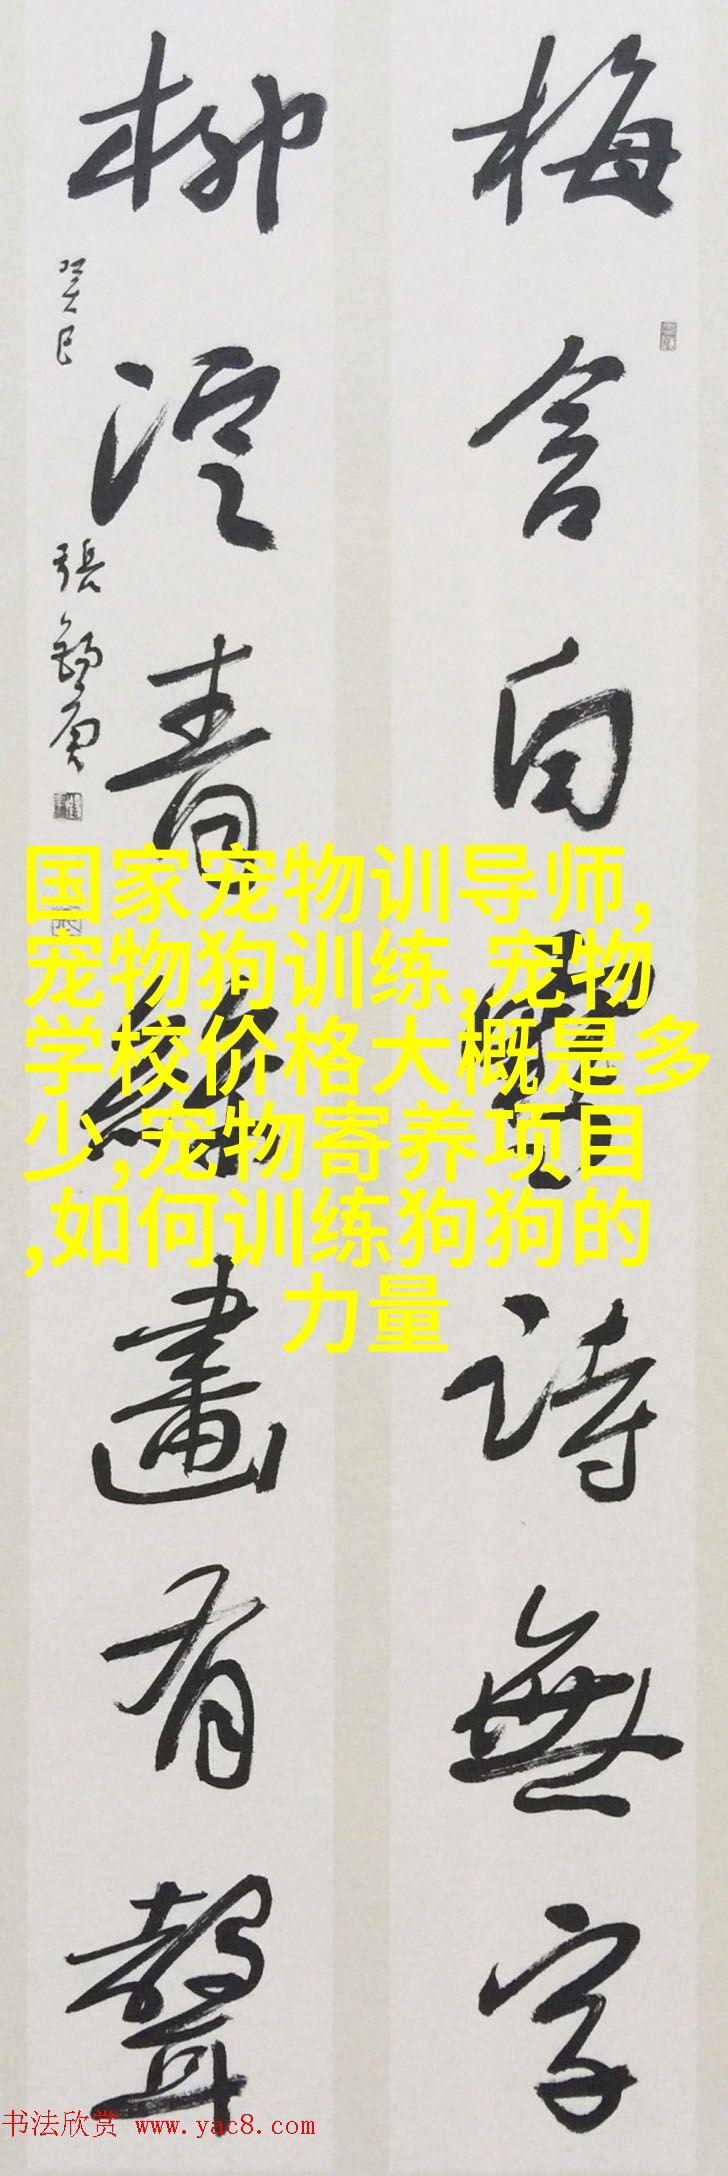 梅含白雪詩無字
柳浥青絲畫有聲
癸巳
張錫庚
国家宠物训导师,
宠物狗训练,宠物
学校价格大概是多
少,宠物寄养项目
,如何训练狗狗的
力量
书法欣赏 www.yac8.com